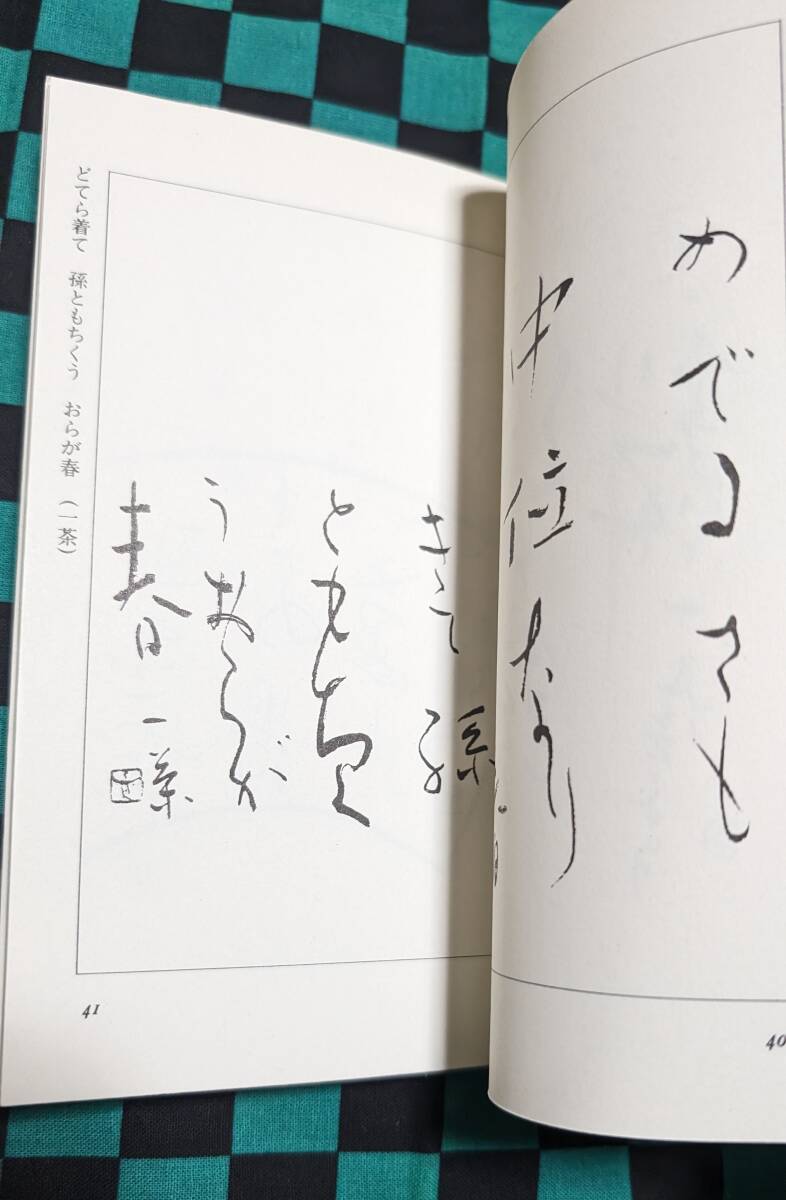 めでるさも
中位なり
40
きて孫
ともちく
うおらが
春 一茶
どてら着て 孫ともちくう おらが春 (一茶)
41